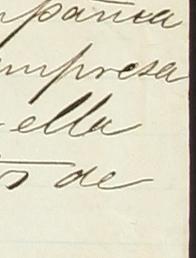 mpañia
empresa
ella
os de